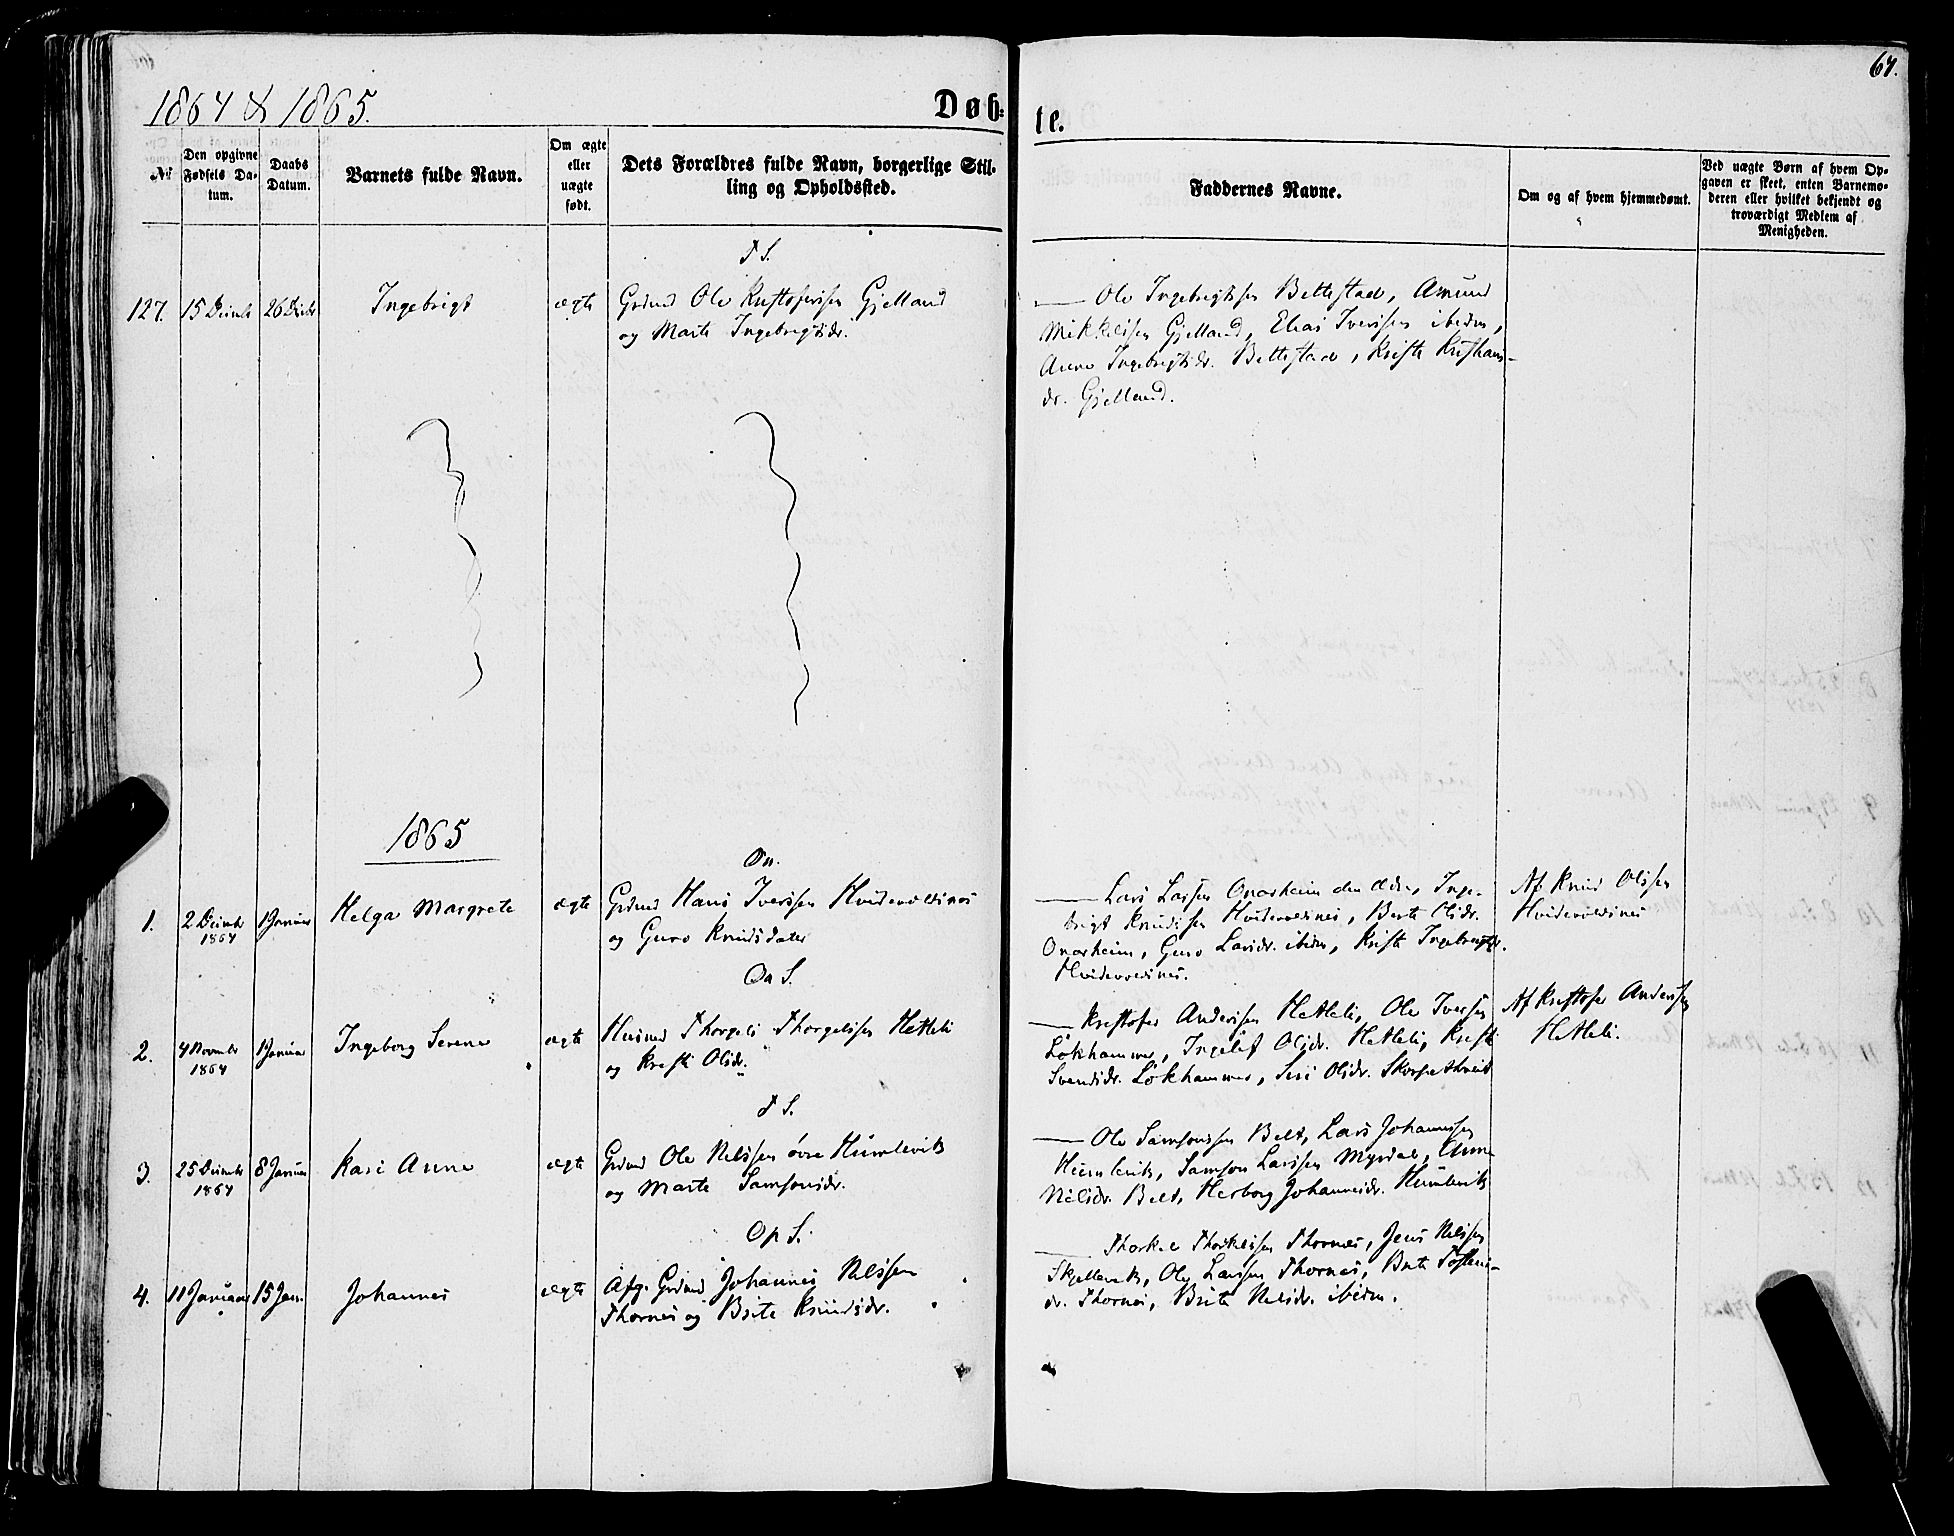 64.
1864 & 1865.
Døb-
te.
№
Den opgivne Fødsels Da-tum.
Daabs Datum.
Barnets fulde Navn.
Om ægte eller uægte født.
Dets Forældres fulde Navn, borgerlige Stil-
ling og Opholdssted.
Faddernes Navne.
Om og af hvem hjemmedømt.
Ved uægte Børn af hvem Op-
gaven er skeet, enten Barnemo-
deren eller hvilket bekjendt og
troværdigt Medlem af
Menigheden.
T S.
127. 15 Decimb 26 Decbr Ingebrigt ægte Grdmd Ole Kristofersen Gjelland
og Marte Ingebrigtsdr.
Ole Ingebrigtsen Bettestad, Amund
Mikkelsen Gjelland, Elias Iversen ibidm,
Anne Ingebrigtsdr. Bettestad, Kriste Kristians-
dr. Gjelland.
1865
On.
1. 2 Decimb 1864 1 Januar Helga Margrete ægte Grdmd Hans Iversen Hviderødsnes
og Guro Knudsdater
Lars Larsen Onarheim den Ældr, Inge-
brigt Knudsen Hviderødsnes, Berte Olsdr.
Onarheim, Guro Larsdr. ibidm, Kriste Ingebrigtsdr.
Hviderødsnes.
Af Knud Olsen
Hviderødsnes
On S.
2. 4 Novembr 1864 1 Januar Ingeborg Serene ægte Husmd Thorgels Thorgelsen Hetleli
og Kristi Olsdr.
Kristofer Andersen Hetleli, Ole Iversen
Lökhammer, Ingeleif Olsdr. Hetleli, Kristi
Svendsdr. Lökhammer, Siri Olsdr. Skorpethveit
Af Kristofer Andersen
Hetleli.
T S.
3. 25 Decimb 1864 8 Januar Kari Anne ægte Grdmd Ole Nelssen övre Humlevik
og Marte Samsonsdr.
Ole Samsonsen Belt, Lars Johannesen
Humlevik, Samson Larssen Myrdal, Anne
Nilsdr. Belt, Herborg Johannesdr. Humlevik
Op S.
4. 11 Januar 15 Jan. Johannes ægte Afg. Grdmd Johannes Nelssen
Thornes og Brite Knudsdr.
Thorkel Thorkelsen Thornes, Jens Nelssen
Skjellevik, Ole Larssen Thornes, Brite Tostens-
dr. Thornes, Brite Nelsdr. ibidm.